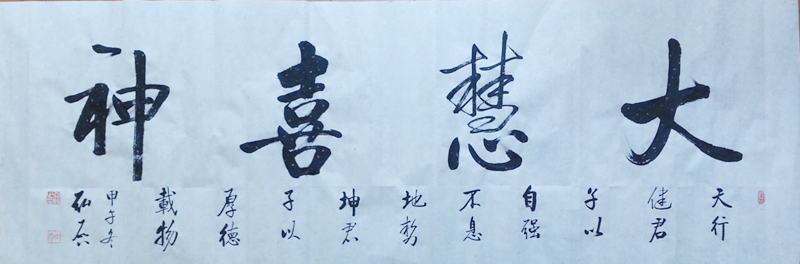 大慧喜神
天行
健君
子以
自强
不息
地勢
坤君
子以
厚德
載物
甲午冬
弘